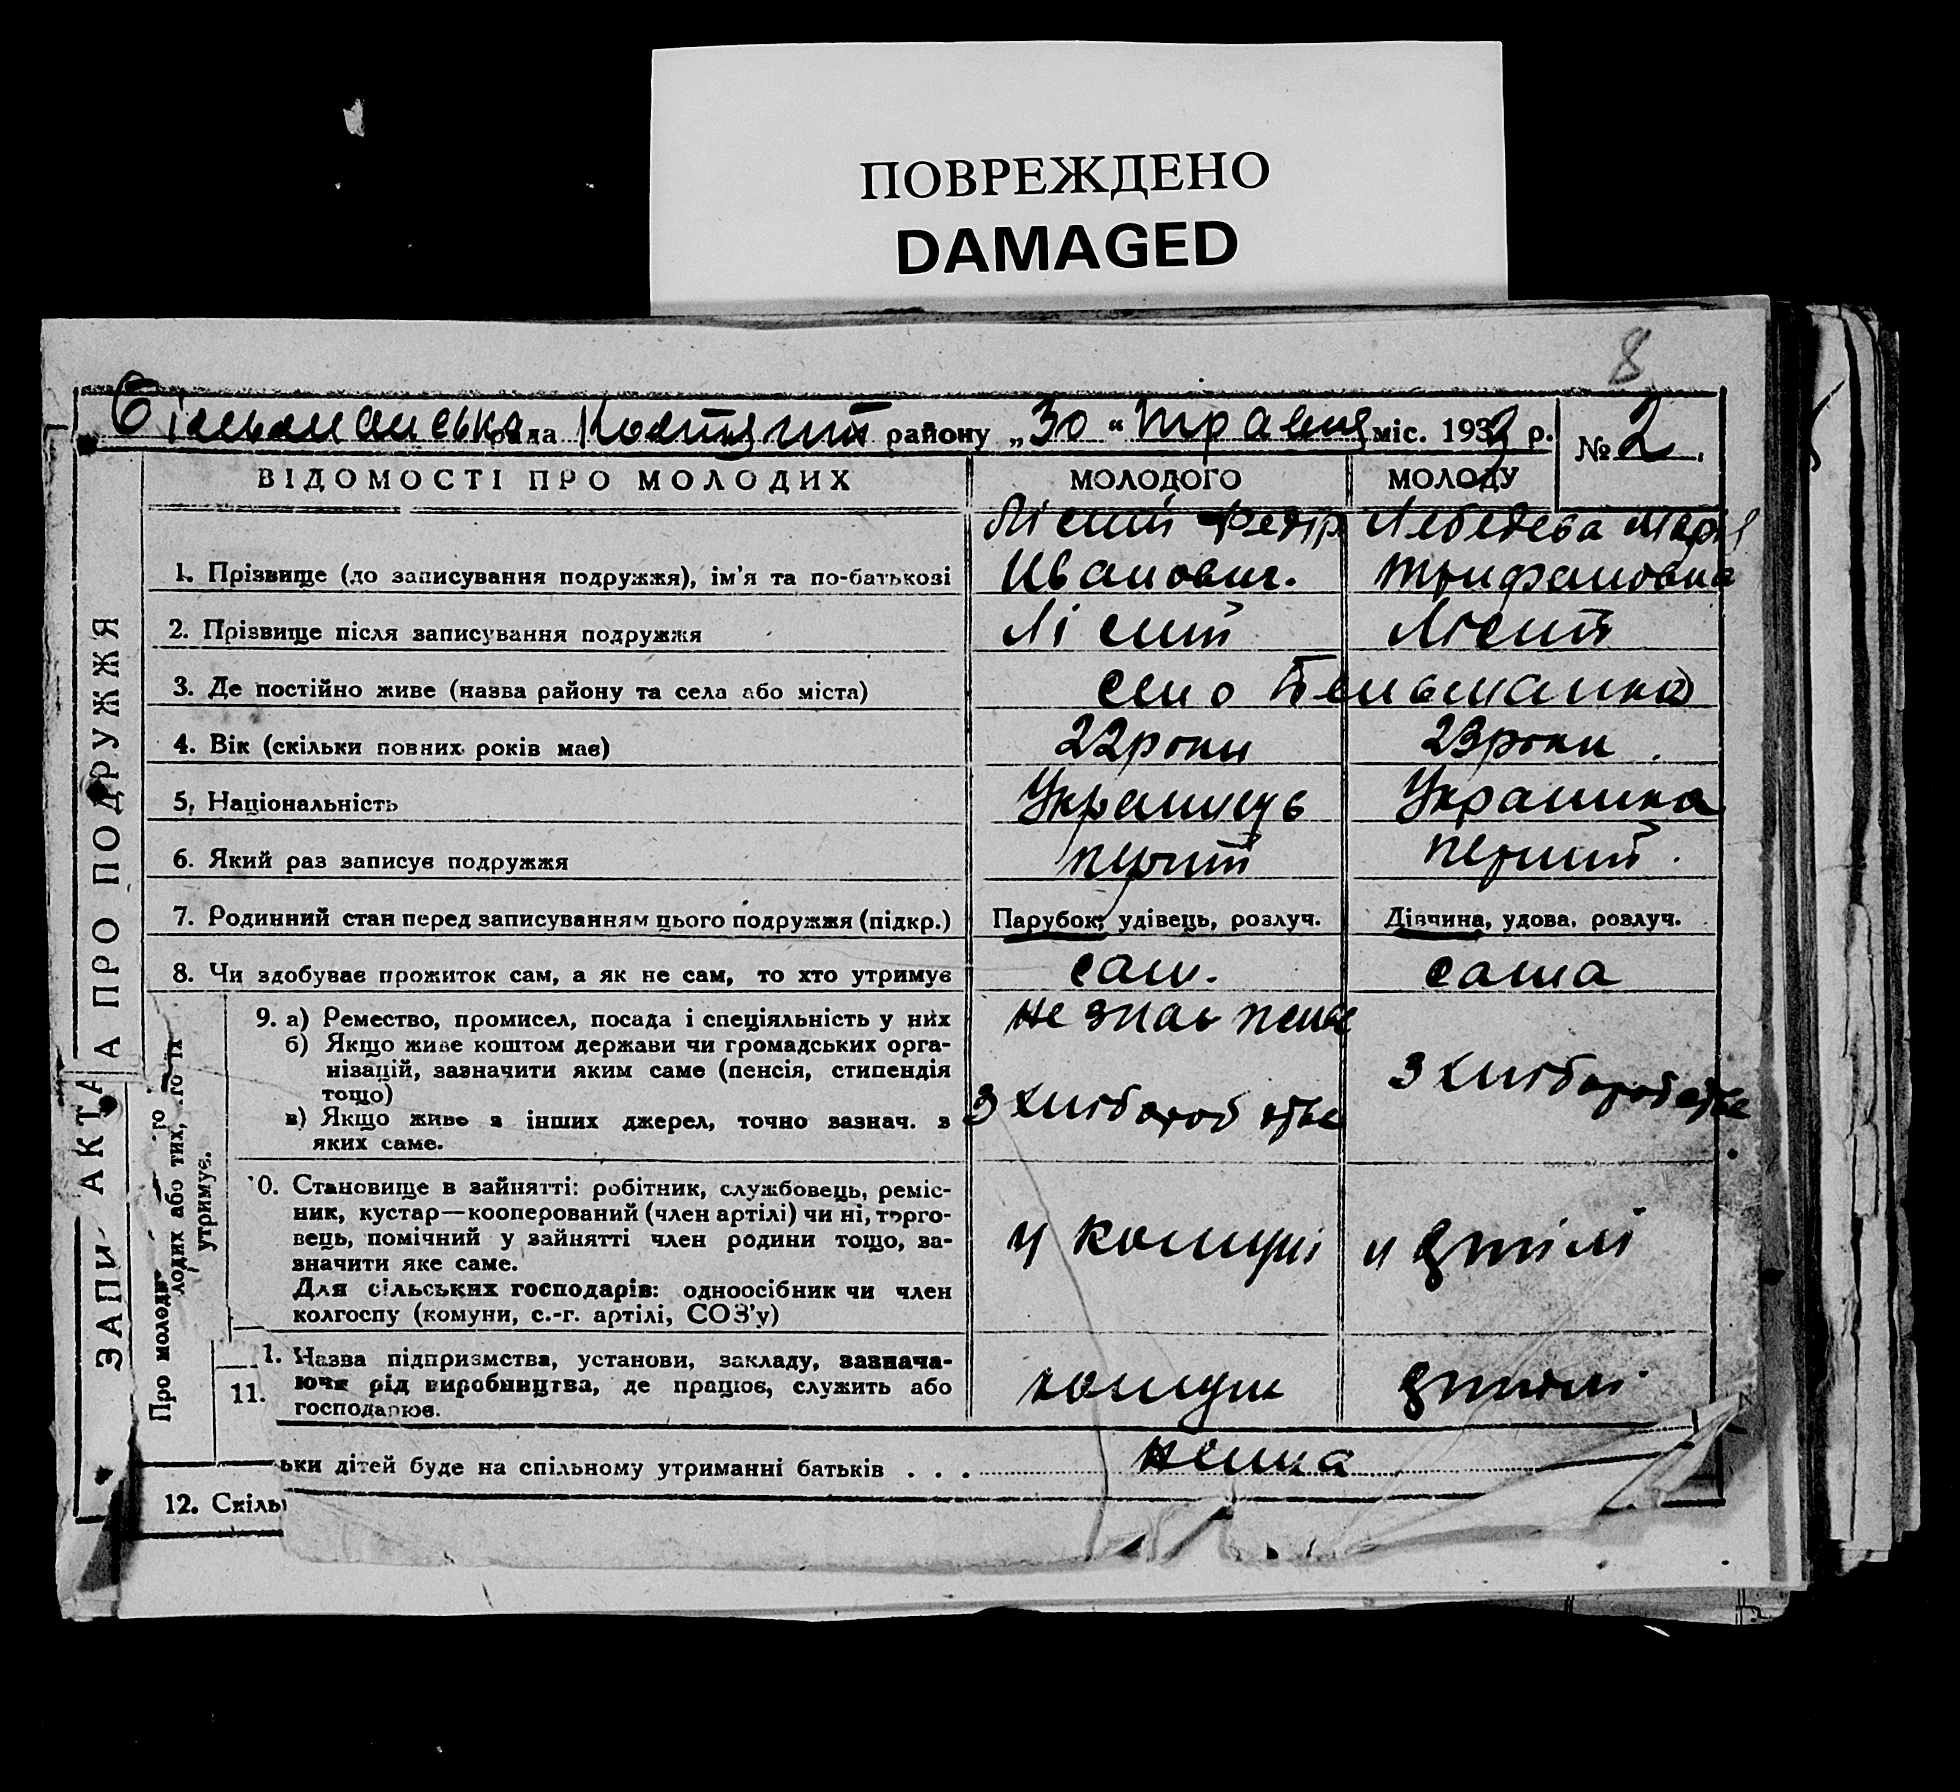 ПОВРЕЖДЕНО
DAMAGED
8
Більманська рада району „30“ Травня міс. 193 р. № 2.
ВІДОМОСТІ ПРО МОЛОДИХ МОЛОДОГО МОЛОДУ
Лісий Федір Лебедева Марія
1. Прізвище (до записування подружжя), ім’я та по-батькові Иванович. Трифановна
2. Прізвище після записування подружжя Лісий Лісий
3. Де постійно живе (назва району та села або міста) село Більманка
4. Вік (скільки повних років має) 22 роки 23 роки.
5, Національність Украинець Украинка
6. Який раз записує подружжя перший перший.
7. Родинний стан перед записуванням цього подружжя (підкр.) Парубок, удівець, розлуч. Дівчина, удова, розлуч.
8. Чи здобуває прожиток сам, а як не сам, то хто утримує сам. сама
9. а) Ремество, промисел, посада і спеціяльність у них не має
б) Якщо живе коштом держави чи громадських орга-
нізацій, зазначити яким саме (пенсія, стипендія
тощо)
в) Якщо живе з інших джерел, точно зазнач. з з хліборобства з хліборобства
яких саме.
0. Становище в зайнятті: робітник, службовець, реміс-
ник, кустар—кооперований (член артілі) чи ні, торго-
вець, помічний у зайнятті член родини тощо, за- у комуні у артілі
значити яке саме.
Для сільських господарів: одноосібник чи член
колгоспу (комуни, с.-г. артілі, СОЗ’у)
1. Назва підприємства, установи, закладу, зазнача-
11. ючи рід виробництва, де працює, служить або комуни артілі
господарює.
ьки дітей буде на спільному утриманні батьків . . . нема
12. Скільк
ЗАПИ АКТА ПРО ПОДРУЖЖЯ
Про молоди
лодих або тих, то їх
утримує.